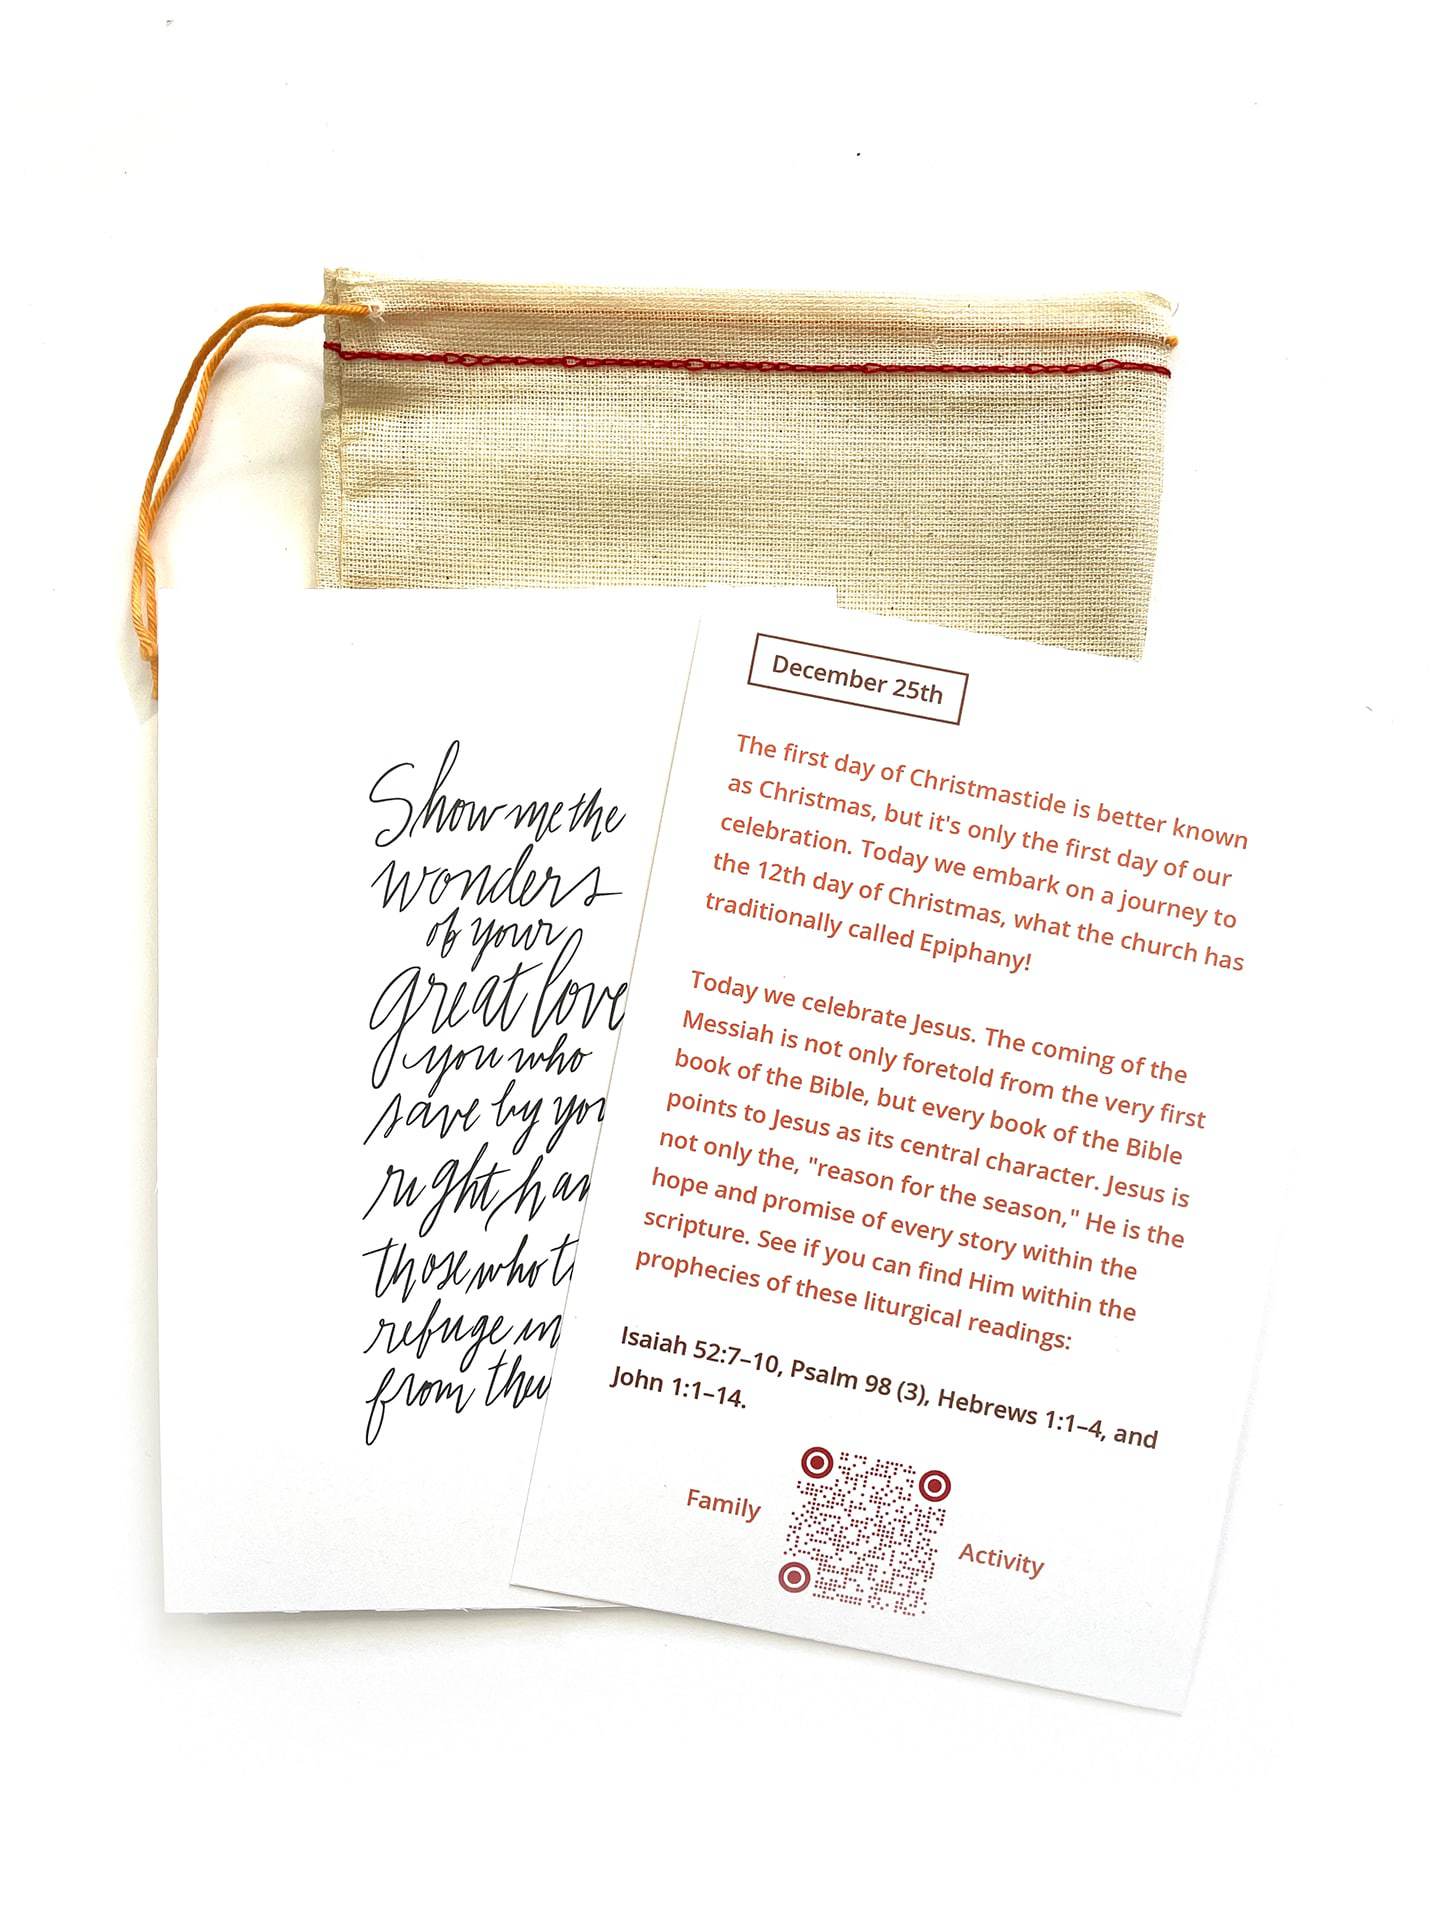 Show me the
wonders
of your
great love
you who
save by you
right han
those who t
refuge in
from thei
December 25th
The first day of Christmastide is better known
as Christmas, but it's only the first day of our
celebration. Today we embark on a journey to
the 12th day of Christmas, what the church has
traditionally called Epiphany!
Today we celebrate Jesus. The coming of the
Messiah is not only foretold from the very first
book of the Bible, but every book of the Bible
points to Jesus as its central character. Jesus is
not only the, "reason for the season," He is the
hope and promise of every story within the
scripture. See if you can find Him within the
prophecies of these liturgical readings:
Isaiah 52:7–10, Psalm 98 (3), Hebrews 1:1–4, and
John 1:1–14.
Family
Activity